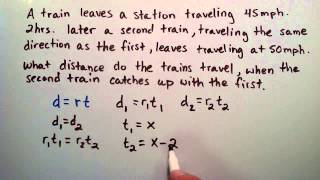 A train leaves a station traveling 45mph.
2hrs. later a second train, traveling the same
direction as the first, leaves traveling at 50mph.
What distance do the trains travel, when the
second train catches up with the first.
d = rt d₁ = r₁t₁ d₂ = r₂t₂
d₁ = d₂ t₁ = x
r₁t₁ = r₂t₂ t₂ = x - 2